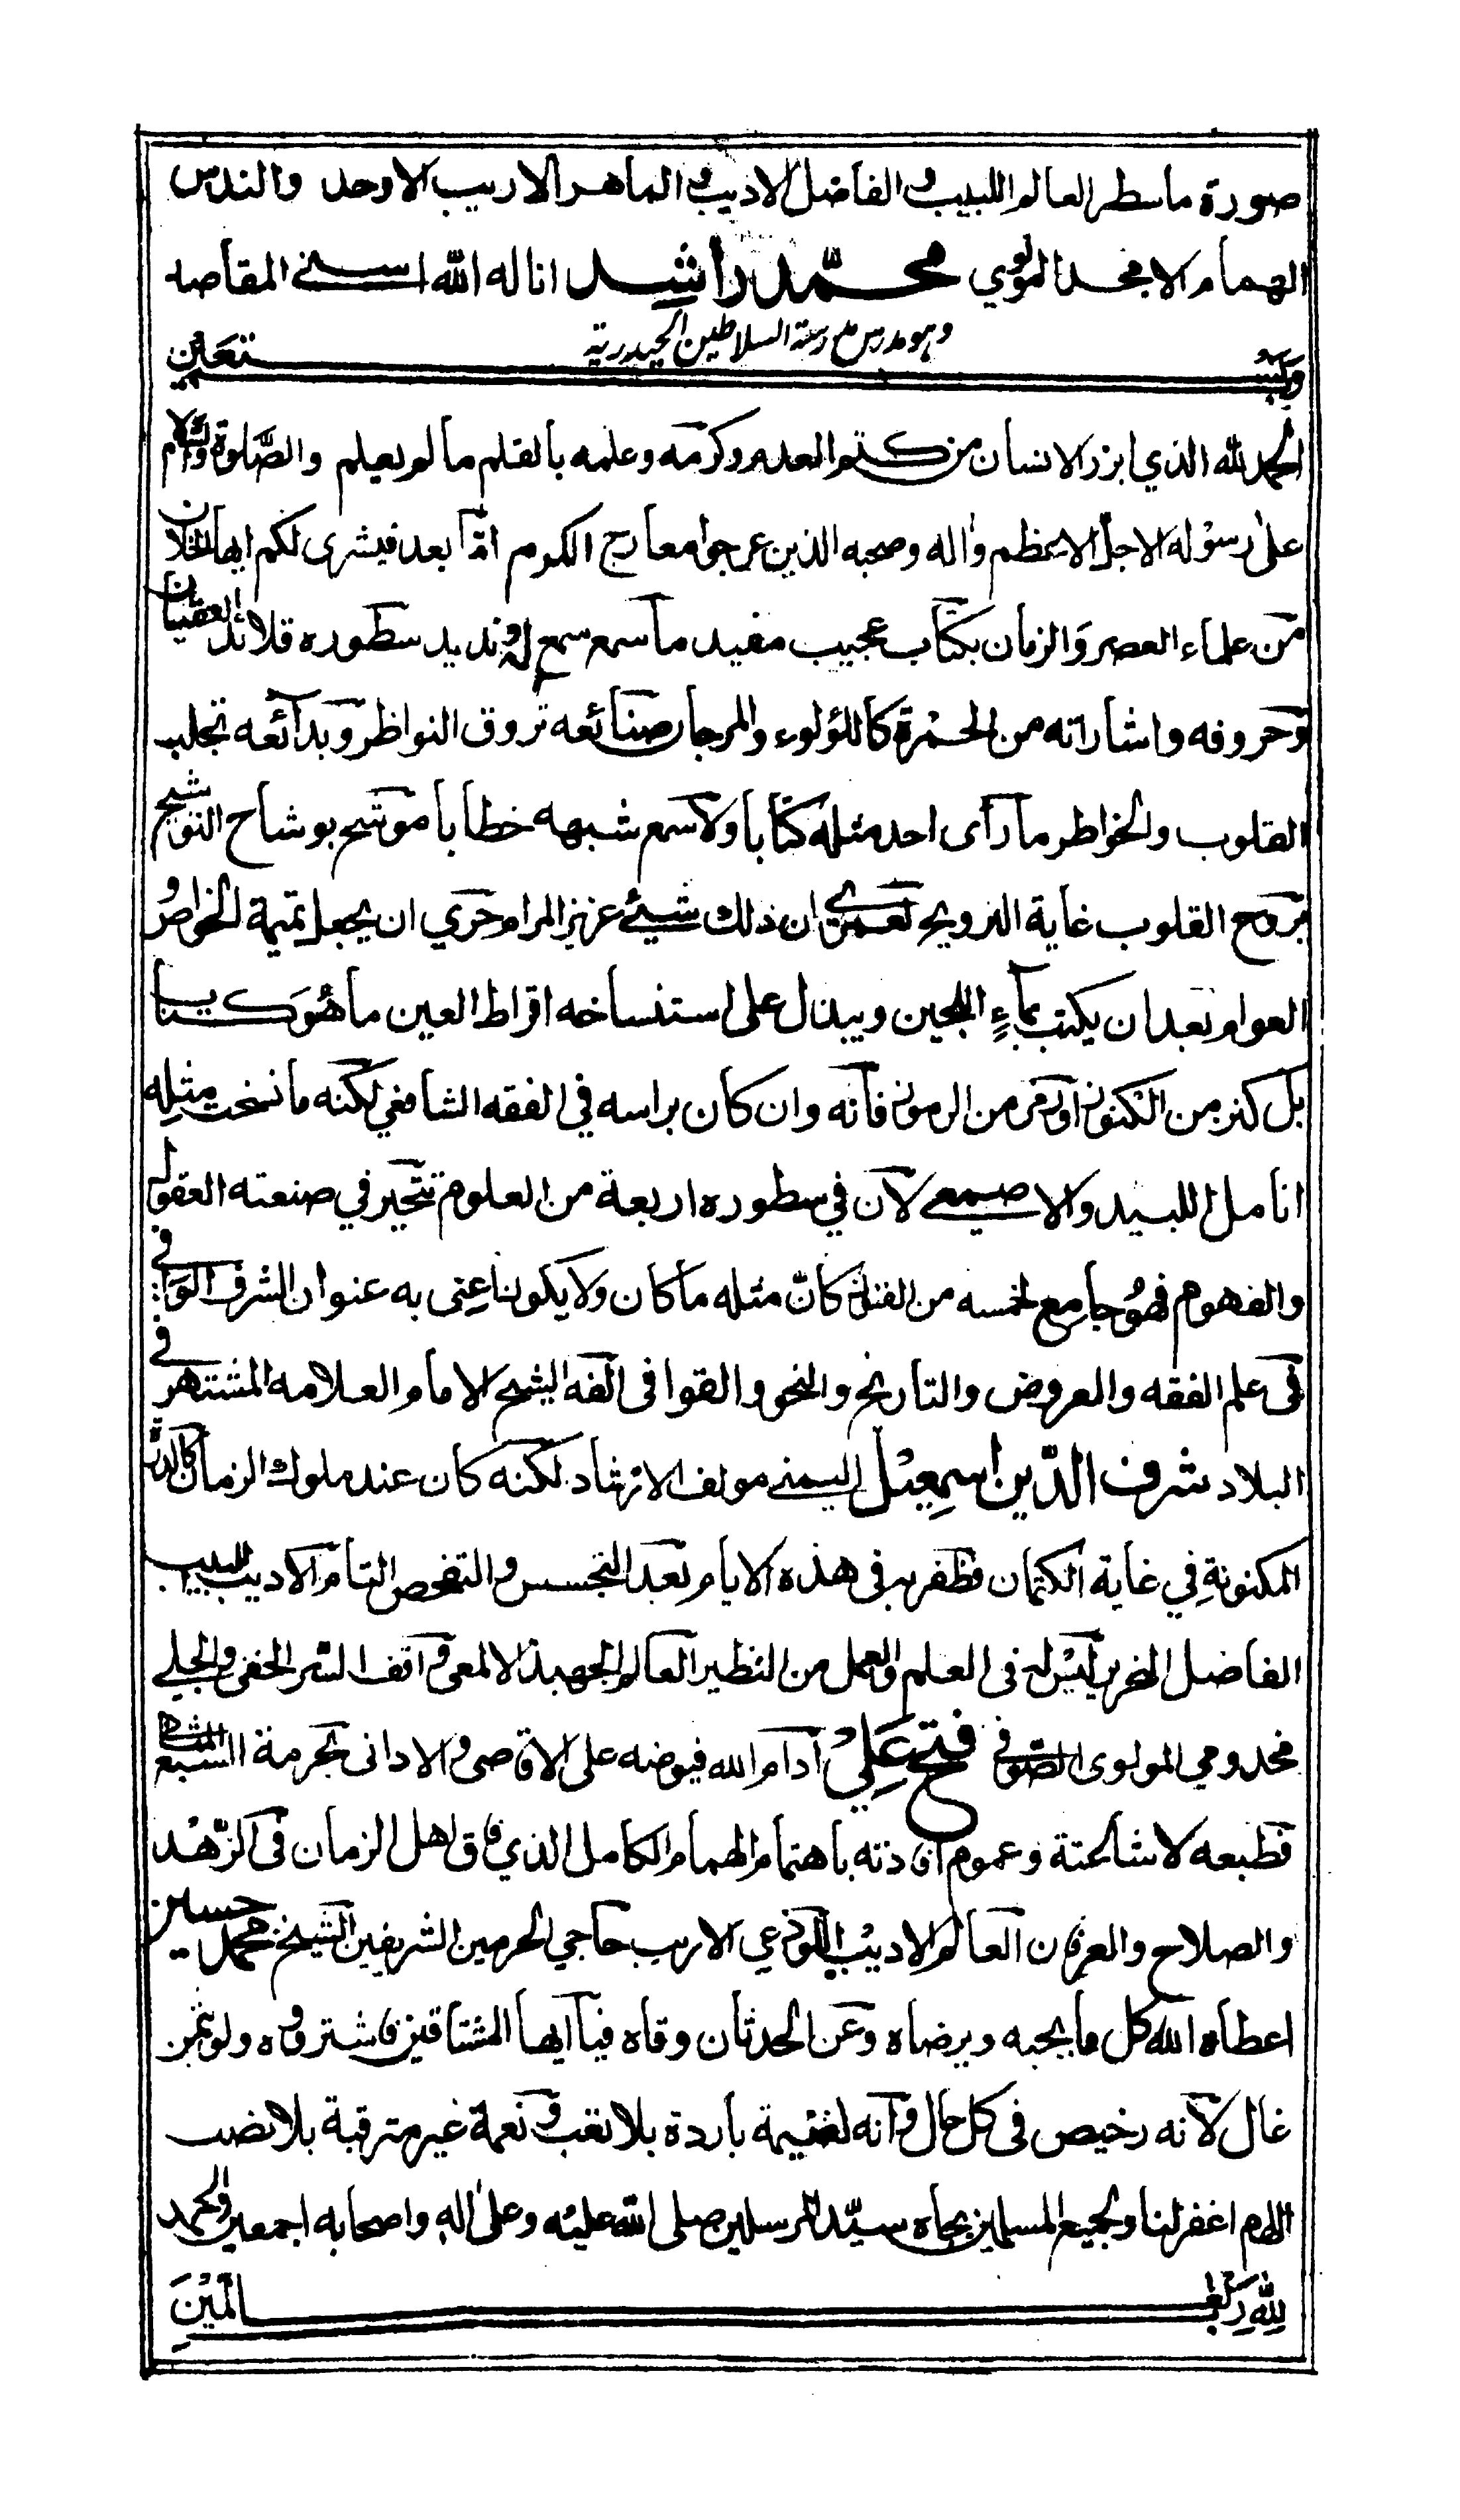 صورة ما سطر العالم اللبيب و الفاضل الاديب و الماهر الاريب الاوحد والندس
الهمام الامجد المولوي محمّد راشد اناله الله اسنى المقاصد
وهو مدرس مدرسة السلاطين الحيدرية
وبه نستعين
الحمد لله الذي ابرز الانسان من كتم العدم وكرمه وعلمه بالقلم ما لم يعلم والصّلوة والسّلام
على رسوله الاجل الاعظم واٰله وصحبه الذين عرجوا معارج الكرم امّا بعد فبشرى لكم ايها الخلان
من علماء العصر والزمان بكتاب عجيب مفيد ما سمع سمع له نديد سطوره قلائد العقيان
وحروفه واشاراته من الحمرة كاللؤلوء والمرجان صنائعه تروق النواظر وبدائعه تجلب
القلوب والخواطر ما رأى احد مثله كتابا ولا سمع شبهه خطابا موشح بوشاح التوشيح
يروح القلوب غاية الترويح لعمرى ان ذلك شيئ عزيز المرام حري ان يجعل تميمة الخواص و
العوام بعد ان يكتب بماءِ اللجين ويبذل على استنساخه اقراط العين ما هو كتابا
بل كنز من الكنوز او رمز من الرموز فانه وان كان براسه في الفقه الشافعي لكنه ما نسخت مثله
انامل اللبيد والاصمعي لان في سطوره اربعة من العلوم تتحير في صنعته العقول
والفهوم فهو جامع لخمسه من الفنون كانّ مثله ما كان ولا يكون اعنى به عنوان الشرف الوافى
فى علم الفقه والعروض والتاريخ والنحو والقوافى الفه الشيخ الامام العلامه المشتهر فى
البلاد شرف الدّين اسمعيل اليمنى مولف الارشاد لكنه كان عند ملوك الزمان كالدرّة
المكنونة في غاية الكتمان فظفر به فى هذه الايام بعد التجسس و التفحص التام الاديب اللبيب
الفاضل النحرير ليس له فى العلم والعمل من النظير العالم الجهبذ الالمعى واقف السّر الخفى والجلى
مخدومي المولوى الصّوفى فتح علي ادام الله فيوضه على الاقاصى و الادانى بحرمة السبع المثانى
فطبعه لاشاعته وعموم افادته باهتمام الهمام الكامل الذي فاق اهل الزمان فى الزّهد
والصلاح والعرفان العالم الاديب اللوذعي الاريب حاجي الحرمين الشريفين الشيخ محمد حسين
اعطاه الله كل ما يحبه ويرضاه وعن الحدثان وقاه فيا ايها المشتاقين فاشتروه ولو بثمن
غال لانه رخيص فى كل حال وانه لغنيمة باردة بلا تعب و نعمة غير مترقبة بلا نصب
اللهم اغفر لنا ولجميع المسلمين بجاه سيّد المرسلين صلى الله عليه وعلى اٰله واصحابه اجمعين والحمد
لله رب العالمين